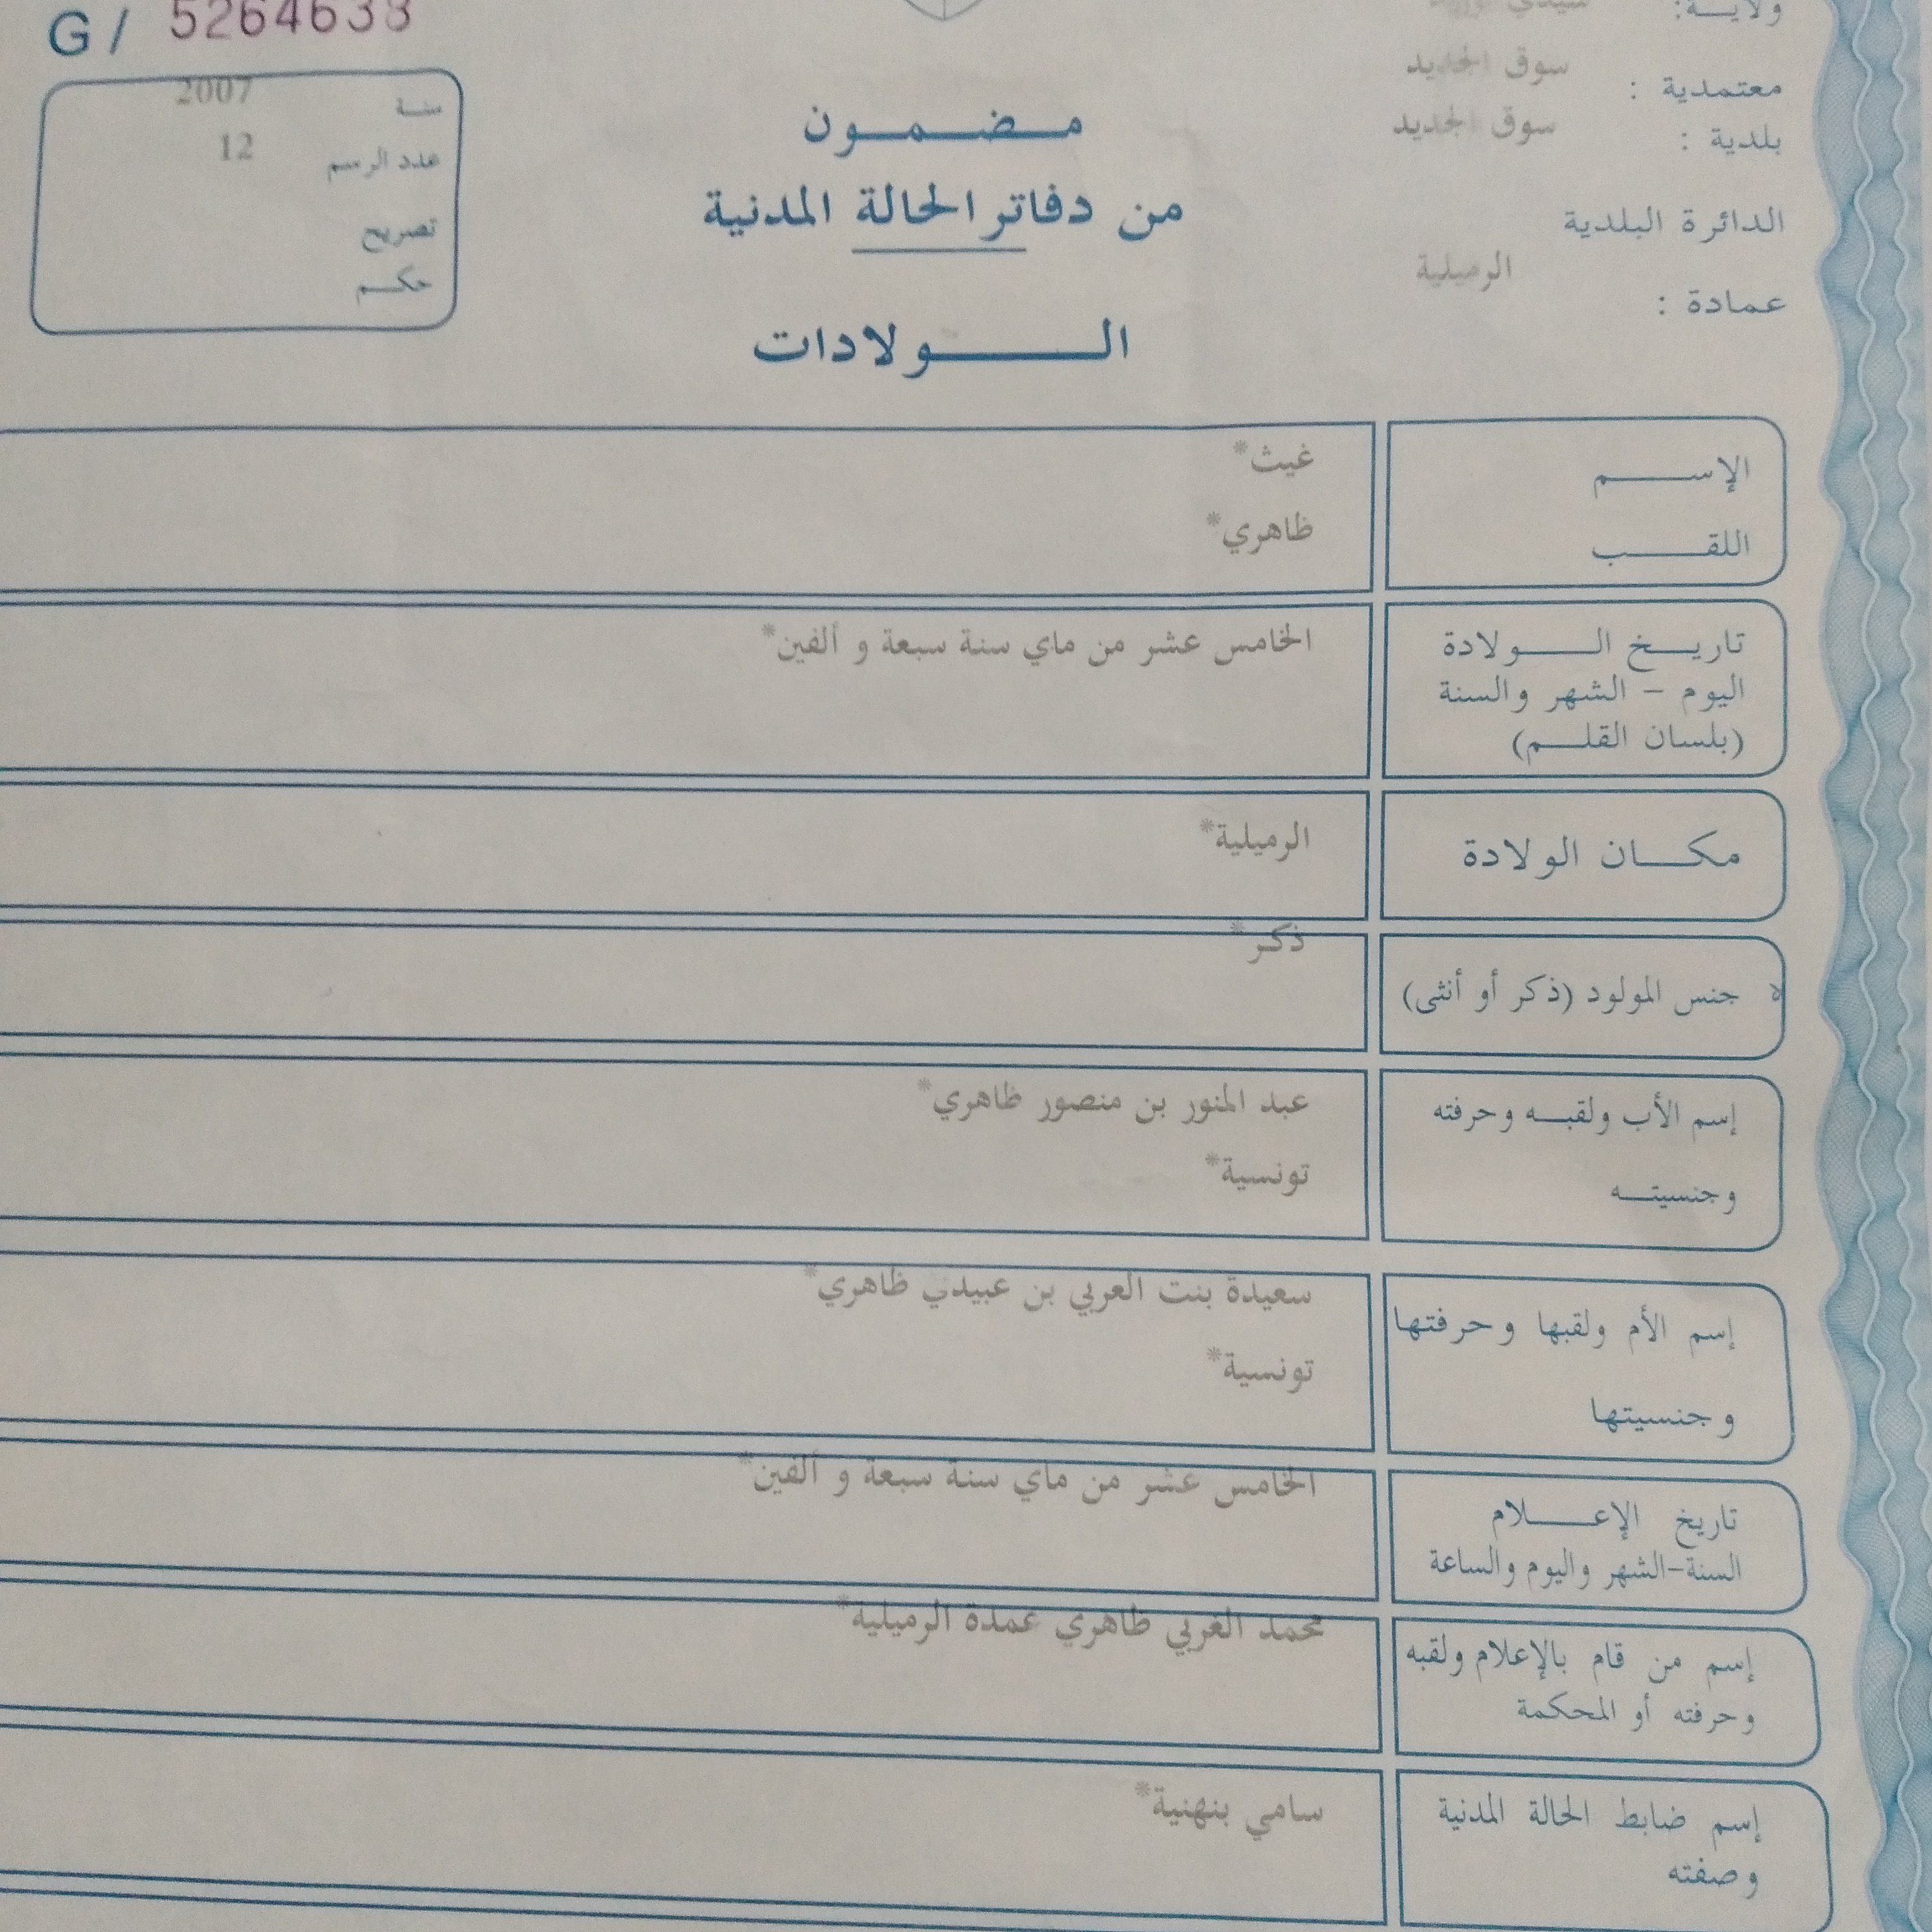 G / 5264638
ولايـــة: سيدي
معتمدية : سوق الجديد
بلدية : سوق الجديد
الدائرة البلدية
الرميلية
عمادة :
سنة 2007
عدد الرسم 12
تصريح
حكم
مضمون
من دفاتر الحالة المدنية
الولادات
الإسم غيث*
اللقب ظاهري*
تاريخ الولادة الخامس عشر من ماي سنة سبعة و ألفين*
اليوم - الشهر والسنة
(بلسان القلم)
مكان الولادة الرميلية*
ذكر*
جنس المولود (ذكر أو أنثى)
إسم الأب ولقبه وحرفته عبد المنور بن منصور ظاهري*
وجنسيته تونسية*
إسم الأم ولقبها وحرفتها سعيدة بنت العربي بن عبيدي ظاهري*
وجنسيتها تونسية*
الخامس عشر من ماي سنة سبعة و ألفين*
تاريخ الإعلام
السنة-الشهر واليوم والساعة
محمد الغربي ظاهري عمدة الرميلية*
إسم من قام بالإعلام ولقبه
وحرفته أو المحكمة
إسم ضابط الحالة المدنية سامي بنهنية*
وصفته